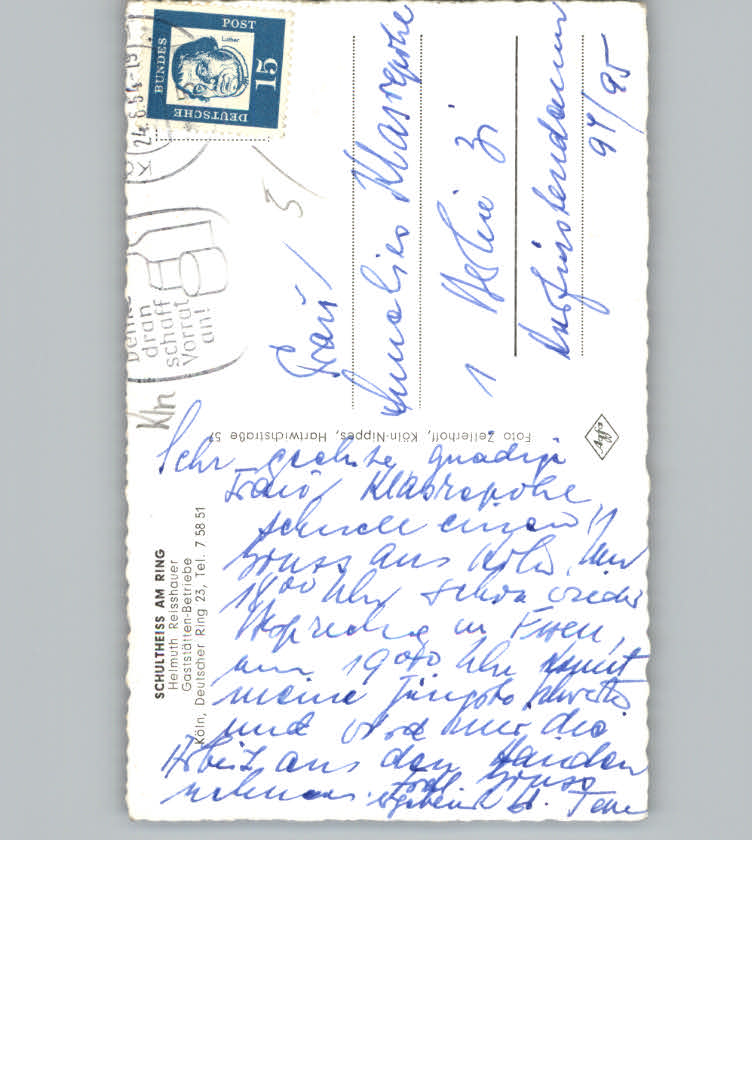 DEUTSCHE
BUNDES
POST
15
Luther
24.6.64-19
Denke
dran
schaff
Vorrat
an!
Kln
3/
Frau
Annelies Klasrepohe
1 Berlin 31
Kurfürstendamm
94/95
Foto Zellerhoff, Köln-Nippes, Hartwichstraße 57
SCHULTHEISS AM RING
Helmuth Reisshauer
Gaststätten-Betriebe
Köln, Deutscher Ring 23, Tel. 7 58 51
Sehr geehrte gnädige
Frau Klasrepohe,
schnell einen
Gruss aus Köln, um
18 00 Uhr schon wieder
in Essen,
um 19 00 Uhr kommt
meine jüngste
und wird mir die
Arbeit aus den Händen
nehmen.
Gruss